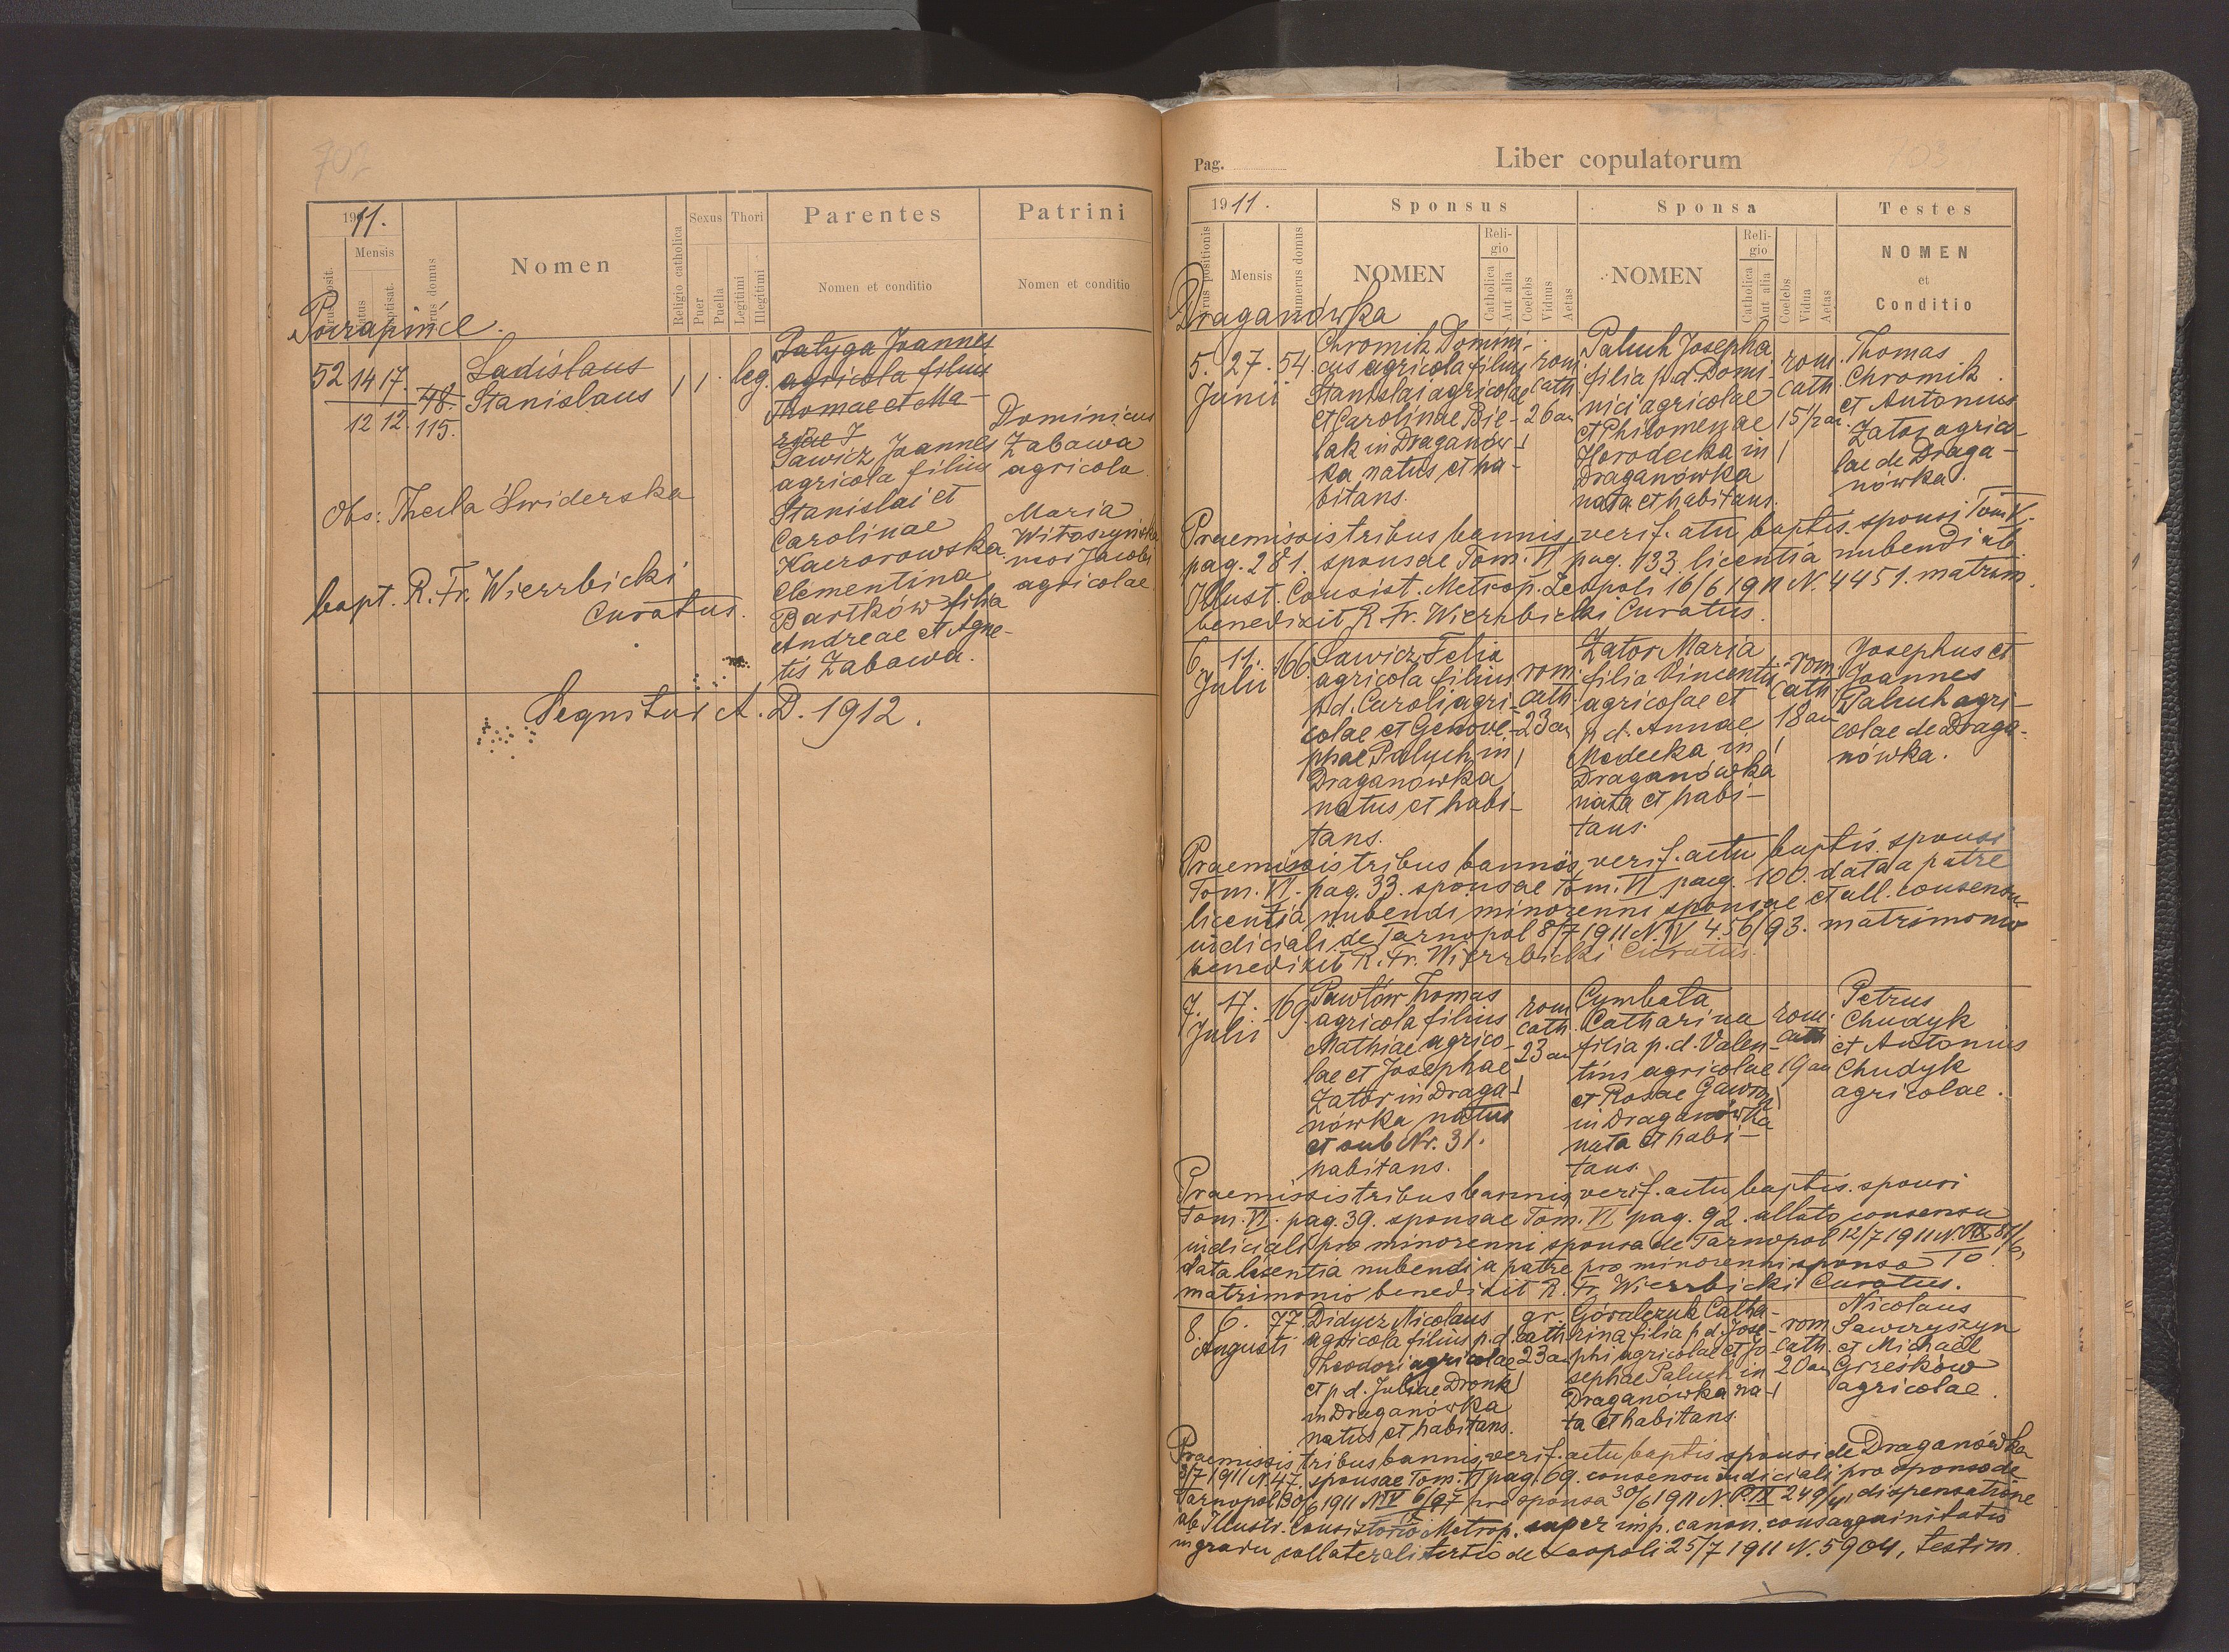 702
1911.
Mensis
Nomen
Religio catholica
Sexus
Puer
Puella
Thori
Legitimi
Illegitimi
Parentes
Nomen et conditio
Patrini
Nomen et conditio
52 14 17.
12 12
48.
115.
Ladislaus
Stanislaus
1 1. leg.
Patyga Joannes
agricola filius
Thomae et Ma-
riae J
Sawicz Joannes
agricola filius
Stanislai et
Carolinae
Kaczorowska
Clementina
Bartków filia
Andreae et Agne-
tis Zabawa.
Dominicus
Zabawa
agricola
Maria
Witoszyńska
uxor Jacobi
agricolae
Obs: Thecla Swiderska
bapt. R. Fr. Wierzbicki
Curatus.
Sequitur A. D. 1912.
Pag.
Liber copulatorum
1911.
Mensis
Numerus domus
Sponsus
NOMEN
Religio
Catholica
Aut alia
Coelebs
Viduus
Aetas
Sponsa
NOMEN
Religio
Catholica
Aut alia
Coelebs
Vidua
Aetas
Testes
NOMEN
et
Conditio
Draganówka
5. 27. 54.
Junii
Chromik Domini-
cus agricola filius
Stanislai agricolae
et Carolinae Bie-
lak in Draganów-
ka natus et ha-
bitans.
rom.
cath
26 an
1
Paluch Josepha
filia p.d. Domi-
nici agricolae
et Philomenae
Horodecka in
Draganówka
nata et habitans.
rom.
cath
15 1/2 an.
1
Thomas
Chromik
et Antonius
Zator agrico-
lae de Draga-
nówka.
Praemissis tribus bannis, verif. actu baptis. sponsi Tom V.
pag. 281. sponsae Tom. VI pag. 133 licentia nubendi ab
Illust. Consist. Metrop. Leopoli 16/6 1911 N. 4451. matrim.
benedixit R. Fr. Wierzbicki Curatus.
6. 11. 166.
Julii
Sawicz Felix
agricola filius
p.d. Caroli agri-
colae et Genove-
phae Paluch in
Draganówka
natus et habi-
tans.
rom.
cath.
23 an
1
Zator Maria
filia Vincentii
agricolae et
p.d. Annae
Modecka in
Draganówka
nata et habi-
tans.
rom.
Cath.
18 an
1
Josephus et
Joannes
Paluch agri-
colae de Draga-
nówka.
Praemissis tribus bannis, verif. actu baptis. sponsi
Tom. VI. pag. 33. sponsae Tom. VI pag. 100. data a patre
licentia nubendi minorenni sponsae et all. consensu
iudiciali de Tarnopol 8/7 1911 N. IV 456/93. matrimonio
benedixit R. Fr. Wierzbicki Curatus.
7. 17. 69.
Julii
Pawlów Thomas
agricola filius
Mathiae agrico-
lae et Josephae
Zator in Draga-
nówka natus
et sub Nr. 31.
habitans.
rom
cath.
23 an
1
Cymbała
Catharina
filia p.d. Valen-
tini agricolae
et Rosae Gawron
in Draganówka
nata et habi-
tans.
rom.
cath
19 an
1
Petrus
Chudyk
et Antonius
Chudyk
agricolae.
Praemissis tribus bannis, verif. actu baptis. sponsi
Tom. VI. pag. 39. sponsae Tom. VI pag. 92. allato consensu
iudiciali pro minorenni sponsa de Tarnopol 12/7 1911 N.
data licentia nubendi a patre pro minorenni sponso
matrimonio benedixit R. Fr. Wierzbicki Curatus.
8. 6. 77.
Augusti
Didycz Nicolaus
agricola filius p.d.
Theodori agricolae
et p.d. Juliae Dronk
in Draganówka
natus et habitans.
gr.
cath
23 an
1
Góralczuk Catha-
rina filia p.d. Jose-
phi agricolae et Jo-
sephae Paluch in
Draganówka na-
ta et habitans.
rom
Cath.
20 an
1
Nicolaus
Sawczyszyn
et Michael
Grześków
agricolae.
Praemissis tribus bannis, verif. actu baptis sponsi de Draganówka
3/7 1911 N. 47. sponsae Tom. VI pag. 69. consensu iudiciali pro sponso de
Tarnopol 30/6 1911 N IV 6/97 pro sponsa 30/6 1911 N. P. IX 249/4, dispensatione
ab Illustr. Consistorio Metrop. super imp. canon. consanguinitatis
in gradu collaterali tertio de Leopoli 25/7 1911 N. 5904, testim.